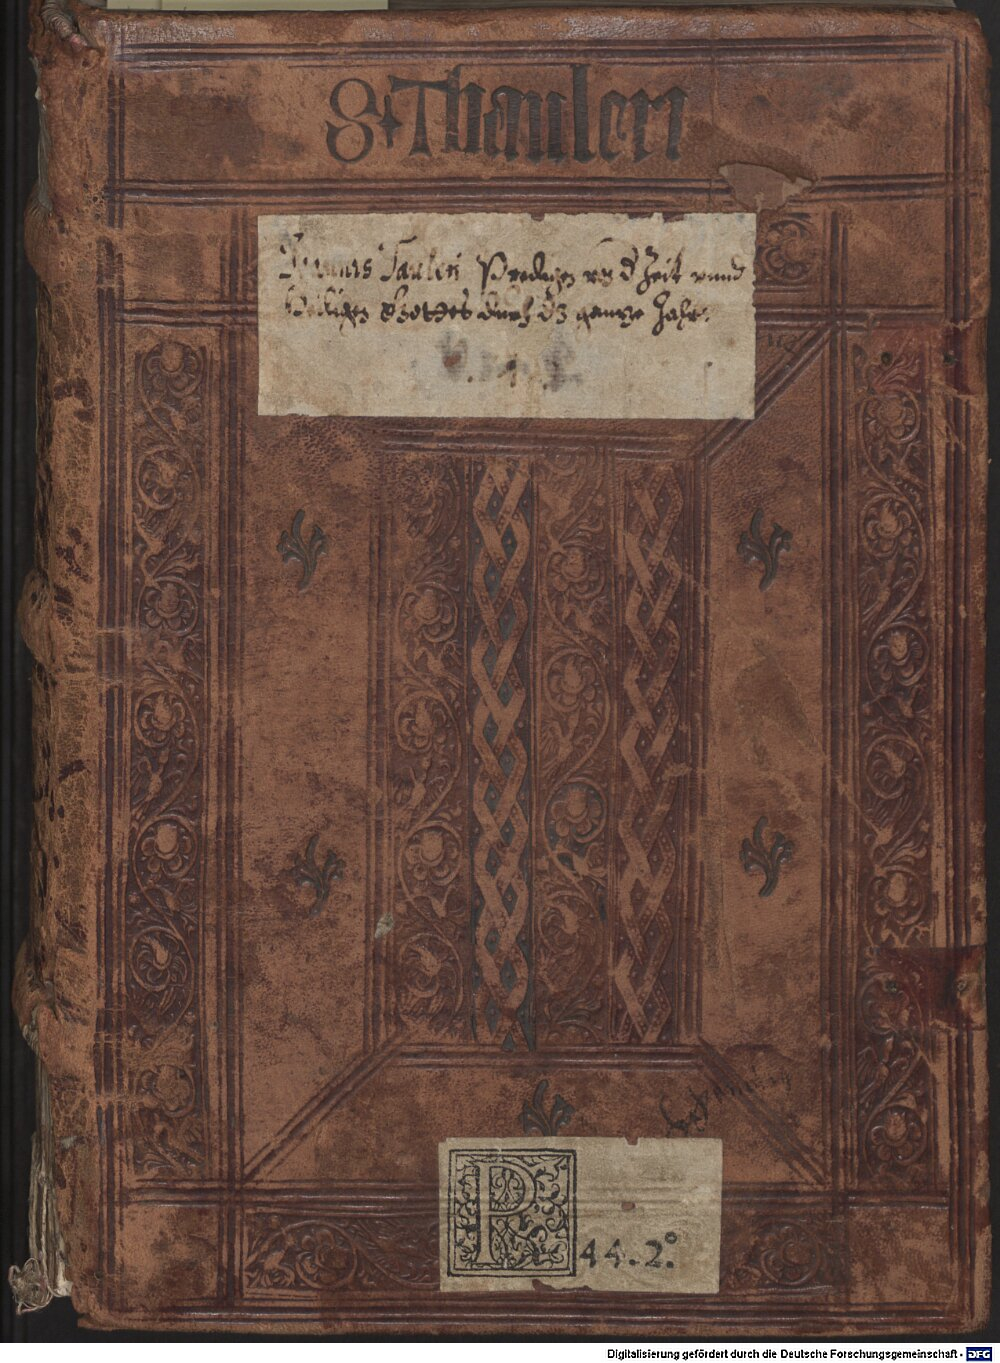 S+Thauleri
Joannis Tauleri Predigen vo d Zeit vnnd
Heiligen durch dz gantze Jahr.
P
44.2°
Digitalisierung gefördert durch die Deutsche Forschungsgemeinschaft - DFG